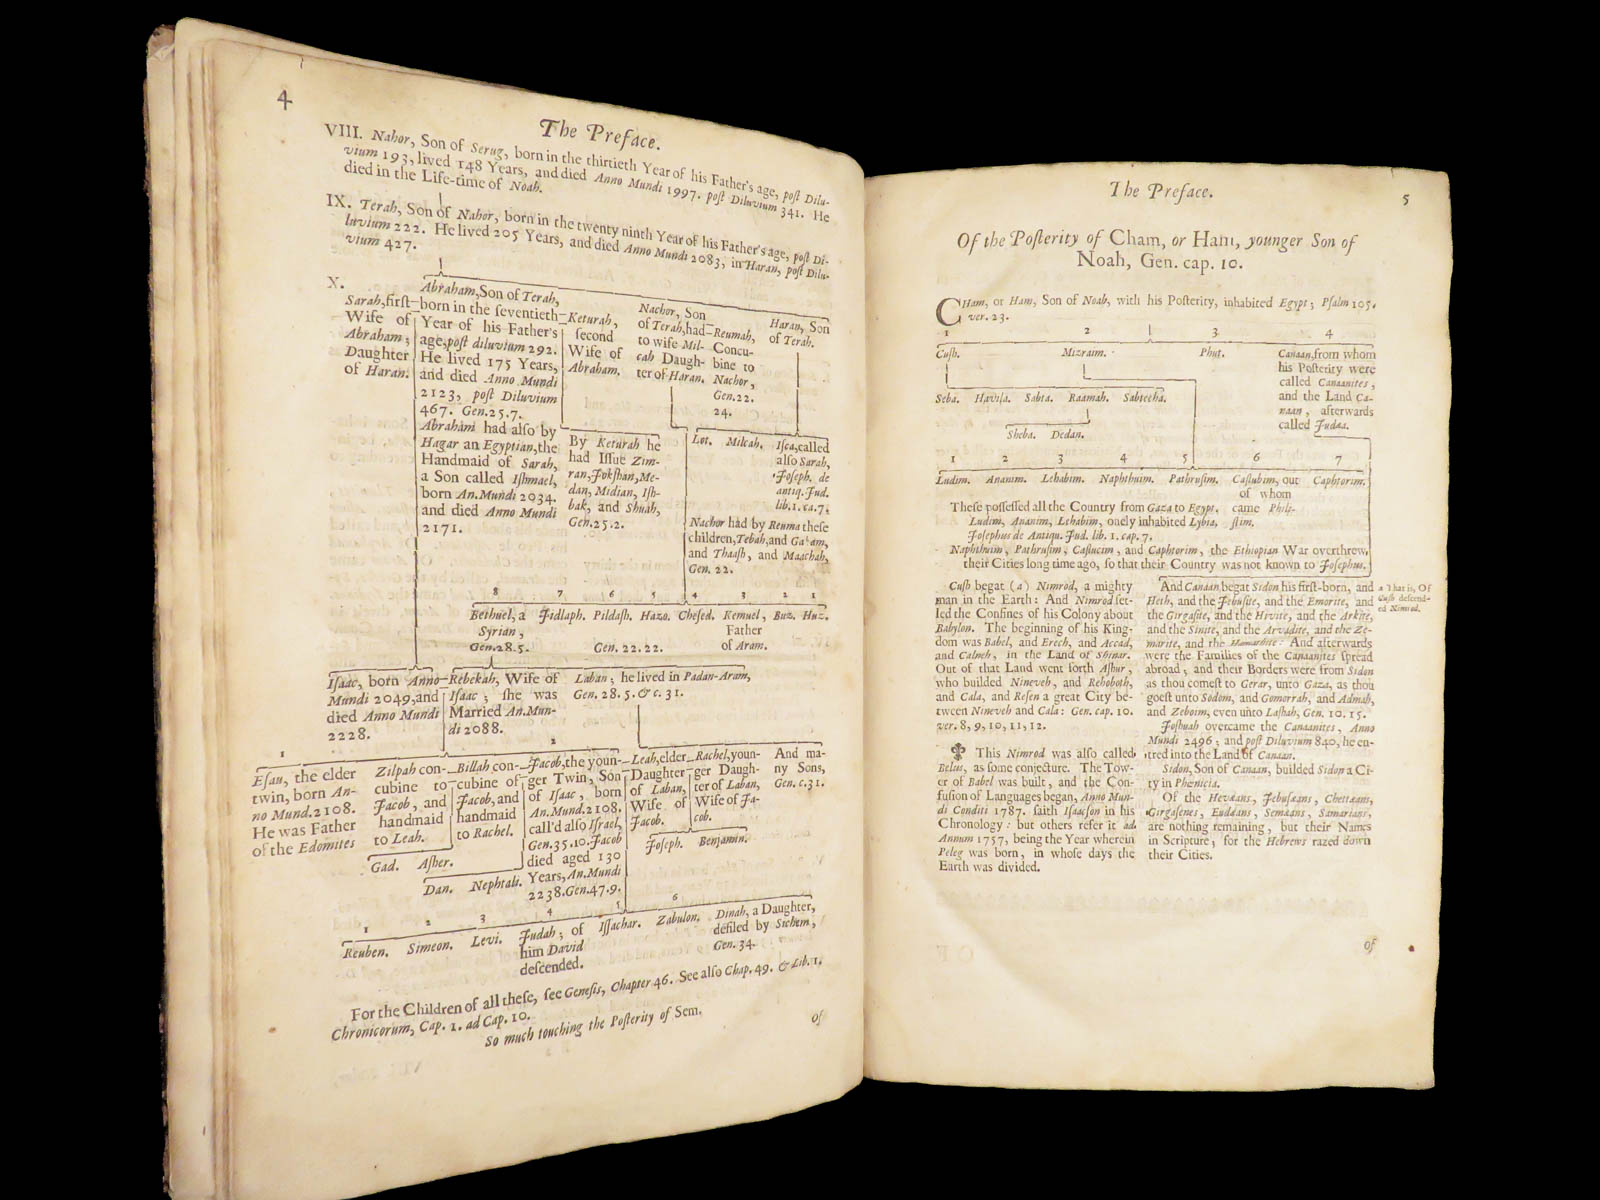 4
The Preface.
VIII. Nahor, Son of Serug, born in the thirtieth Year of his Father's age, post Dilu-
vium 193, lived 148 Years, and died Anno Mundi 1997. post Diluvium 341. He
died in the Life-time of Noah.
IX. Terah, Son of Nahor, born in the twenty ninth Year of his Father's age, post Di-
luvium 222. He lived 205 Years, and died Anno Mundi 2083, in Haran, post Dilu-
vium 427.
X.
Sarah, first
Wife of
Abraham;
Daughter
of Haran.
Abraham, Son of Terah,
born in the seventieth
Year of his Father's
age, post diluvium 292.
He lived 175 Years,
and died Anno Mundi
2123, post Diluvium
467. Gen. 25. 7.
Abraham had also by
Hagar an Egyptian, the
Handmaid of Sarah,
a Son called Ishmael,
born An. Mundi 2034.
and died Anno Mundi
2171.
Keturah,
second
Wife of
Abraham.
By Keturah he
had Issue Zim-
ran, Jokshan, Me-
dan, Midian, Ish-
bak, and Shuah,
Gen. 25. 2.
Nachor, Son
of Terah, had
to wife Mil-
cah Daugh-
ter of Haran.
Reumah,
Concu-
bine to
Nachor,
Gen. 22.
24.
Haran, Son
of Terah.
Lot. Milcah. Isca, called
also Sarah,
Joseph. de
antiq. Jud.
lib. 1. ca. 7.
Nachor had by Reuma these
children, Tebah, and Gaham,
and Thaash, and Maachah,
Gen. 22.
8 7 6 5 4 3 2 1
Bethuel, a Jidlaph. Pildash. Hazo. Chesed. Kemuel, Buz. Huz.
Syrian, Father
Gen. 28. 5. Gen. 22. 22. of Aram.
Isaac, born Anno
Mundi 2049, and
died Anno Mundi
2228.
Rebekah, Wife of
Isaac; she was
Married An. Mun-
di 2088.
Laban; he lived in Padan-Aram,
Gen. 28. 5. & c. 31.
1
Esau, the elder
twin, born An-
no Mund. 2108.
He was Father
of the Edomites
Zilpah con-
cubine to
Jacob, and
handmaid
to Leah.
Billah con-
cubine of
Jacob, and
handmaid
to Rachel.
2
Jacob, the youn-
ger Twin, Son
of Isaac, born
An. Mund. 2108.
call'd also Israel,
Gen. 35. 10. Jacob
died aged 130
Years, An. Mundi
2238. Gen. 47. 9.
Leah, elder
Daughter
of Laban,
Wife of
Jacob.
Rachel, youn-
ger Daugh-
ter of Laban,
Wife of Ja-
cob.
And ma-
ny Sons,
Gen. c. 31.
Joseph. Benjamin.
Gad. Asher.
Dan. Nephtali.
1 2 3 4 5 6
Reuben. Simeon. Levi. Judah; of Issachar. Zabulon. Dinah, a Daughter,
him David defiled by Sichem,
descended. Gen. 34.
For the Children of all these, see Genesis, Chapter 46. See also Chap. 49. & Lib. 1.
Chronicorum, Cap. 1. ad Cap. 10.
So much touching the Posterity of Sem.
of
The Preface.
5
Of the Posterity of Cham, or Ham, younger Son of
Noah, Gen. cap. 10.
CHam, or Ham, Son of Noah, with his Posterity, inhabited Egypt; Psalm 105.
ver. 23.
1 2 3 4
Cush. Mizraim. Phut. Canaan, from whom
his Posterity were
called Canaanites,
and the Land Ca-
naan, afterwards
called Judæa.
Seba. Havila. Sabta. Raamah. Sabtecha.
Sheba. Dedan.
1 2 3 4 5 6 7
Ludim. Ananim. Lehabim. Naphthuim. Pathrusim. Caslubim, out Caphtorim.
of whom
came Phili-
stim.
These possessed all the Country from Gaza to Egypt.
Ludim, Ananim, Lehabim, onely inhabited Lybia,
Josephus de Antiqu. Jud. lib. 1. cap. 7.
Naphthuim, Pathrusim, Caslucim, and Caphtorim, the Ethiopian War overthrew
their Cities long time ago, so that their Country was not known to Josephus.
Cush begat (a) Nimrod, a mighty
man in the Earth: And Nimrod set-
led the Confines of his Colony about
Babylon. The beginning of his King-
dom was Babel, and Erech, and Accad,
and Calneh, in the Land of Shinar.
Out of that Land went forth Ashur,
who builded Nineveh, and Rehoboth,
and Cala, and Resen a great City be-
tween Nineveh and Cala: Gen. cap. 10.
ver. 8, 9, 10, 11, 12.
This Nimrod was also called
Belus, as some conjecture. The Tow-
er of Babel was built, and the Con-
fusion of Languages began, Anno Mun-
di Conditi 1787. saith Isaacson in his
Chronology: but others refer it ad
Annum 1757, being the Year wherein
Peleg was born, in whose days the
Earth was divided.
And Canaan begat Sidon his first-born, and
Heth, and the Jebusite, and the Emorite, and
the Girgasite, and the Hivite, and the Arkite,
and the Sinite, and the Arvadite, and the Ze-
marite, and the Hamathite: And afterwards
were the Families of the Canaanites spread
abroad; and their Borders were from Sidon
as thou comest to Gerar, unto Gaza, as thou
goest unto Sodom, and Gomorrah, and Admah,
and Zeboim, even unto Lashah, Gen. 10. 15.
Joshuah overcame the Canaanites, Anno
Mundi 2496; and post Diluvium 840, he en-
tred into the Land of Canaan.
Sidon, Son of Canaan, builded Sidon a Ci-
ty in Phœnicia.
Of the Hevæans, Jebusæans, Chettæans,
Girgasenes, Eudæans, Semæans, Samarians,
are nothing remaining, but their Names
in Scripture; for the Hebrews razed down
their Cities.
a That is, Of
Cush descend-
ed Nimrod.
of